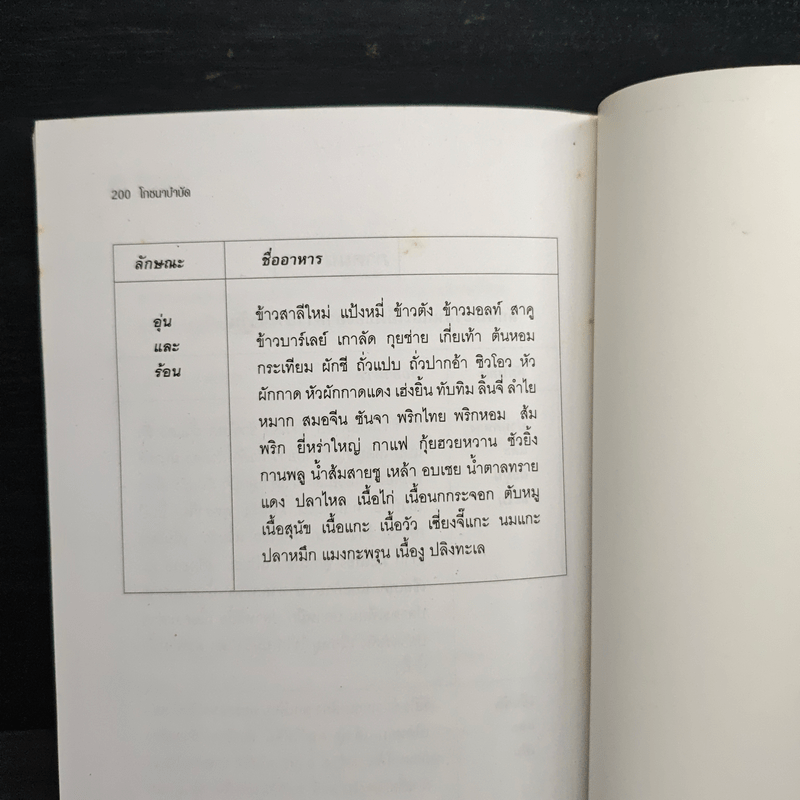 200 โภชนาบำบัด
ลักษณะ ชื่ออาหาร
อุ่น
และ
ร้อน
ข้าวสาลีใหม่ แป้งหมี่ ข้าวตัง ข้าวมอลท์ สาคู
ข้าวบาร์เลย์ เกาลัด กุยช่าย เกี่ยเท้า ต้นหอม
กระเทียม ผักชี ถั่วแปบ ถั่วปากอ้า ซิวโอว หัว
ผักกาด หัวผักกาดแดง เฮ่งยิ้น ทับทิม ลิ้นจี่ ลำไย
หมาก สมอจีน ซันจา พริกไทย พริกหอม ส้ม
พริก ยี่หร่าใหญ่ กาแฟ กุ้ยฮวยหวาน ชัวยิ้ง
กานพลู น้ำส้มสายชู เหล้า อบเชย น้ำตาลทราย
แดง ปลาไหล เนื้อไก่ เนื้อนกกระจอก ตับหมู
เนื้อสุนัข เนื้อแกะ เนื้อวัว เซี่ยงจี๊แกะ นมแกะ
ปลาหมึก แมงกะพรุน เนื้องู ปลิงทะเล